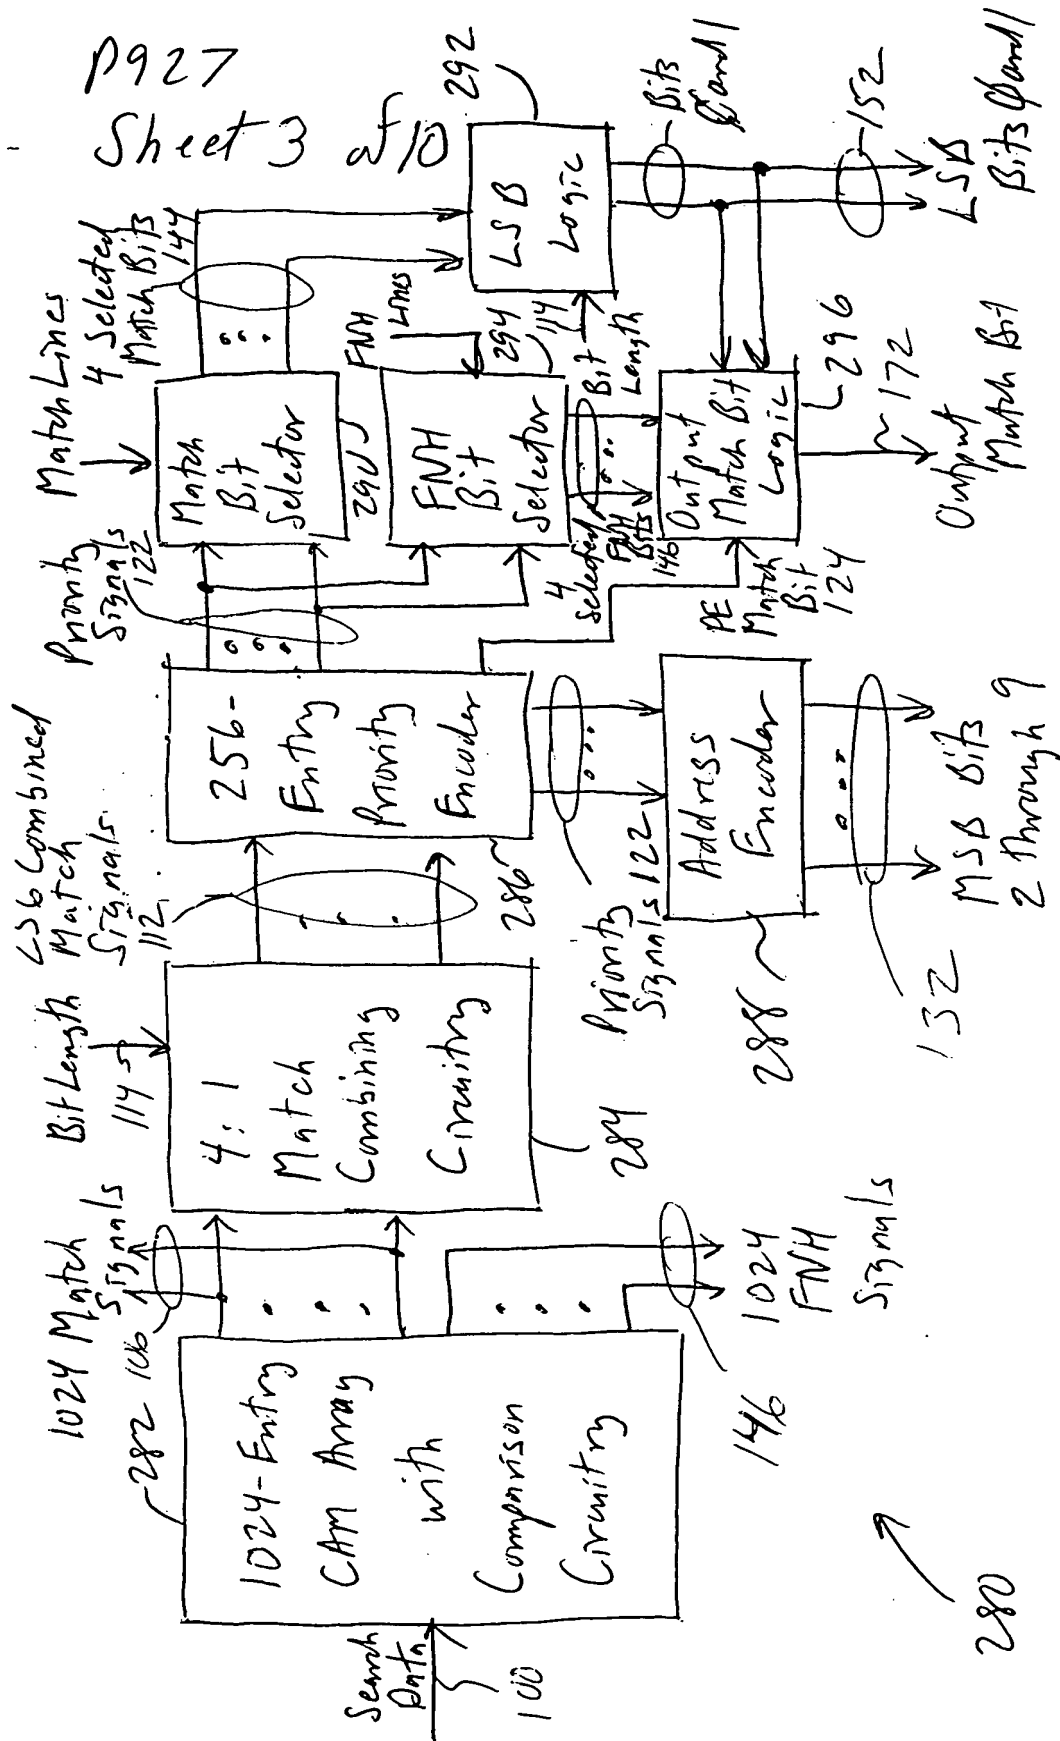 P927
Sheet 3 of 10
Search
Data
100
282
1024-Entry
CAM Array
with
Comparison
Circuitry
1024 Match
Signals
106
146
1024
FNH
Signals
280
Bit Length
114
4:1
Match
Combining
Circuitry
284
256 Combined
Match
Signals
112
256-
Entry
Priority
Encoder
286
Priority
Signals
122
Priority
Signals 122
Address
Encoder
288
132
MSB Bits
2 Through 9
Match Lines
Match
Bit
Selector
290
4 Selected
Match Bits
144
FNH
Lines
FNH
Bit
Selector
294
4
Selected
FNH
Bits
146
114
Bit
Length
LSB
Logic
292
Bits
0 and 1
152
LSB
Bits 0 and 1
Output
Match Bit
Logic
296
PE
Match
Bit
124
172
Output
Match Bit